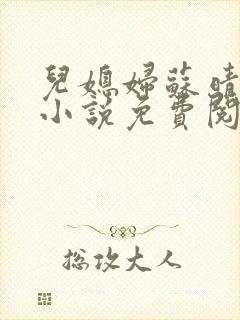 兒媳婦蘇晴
小說免費閱
总攻大人